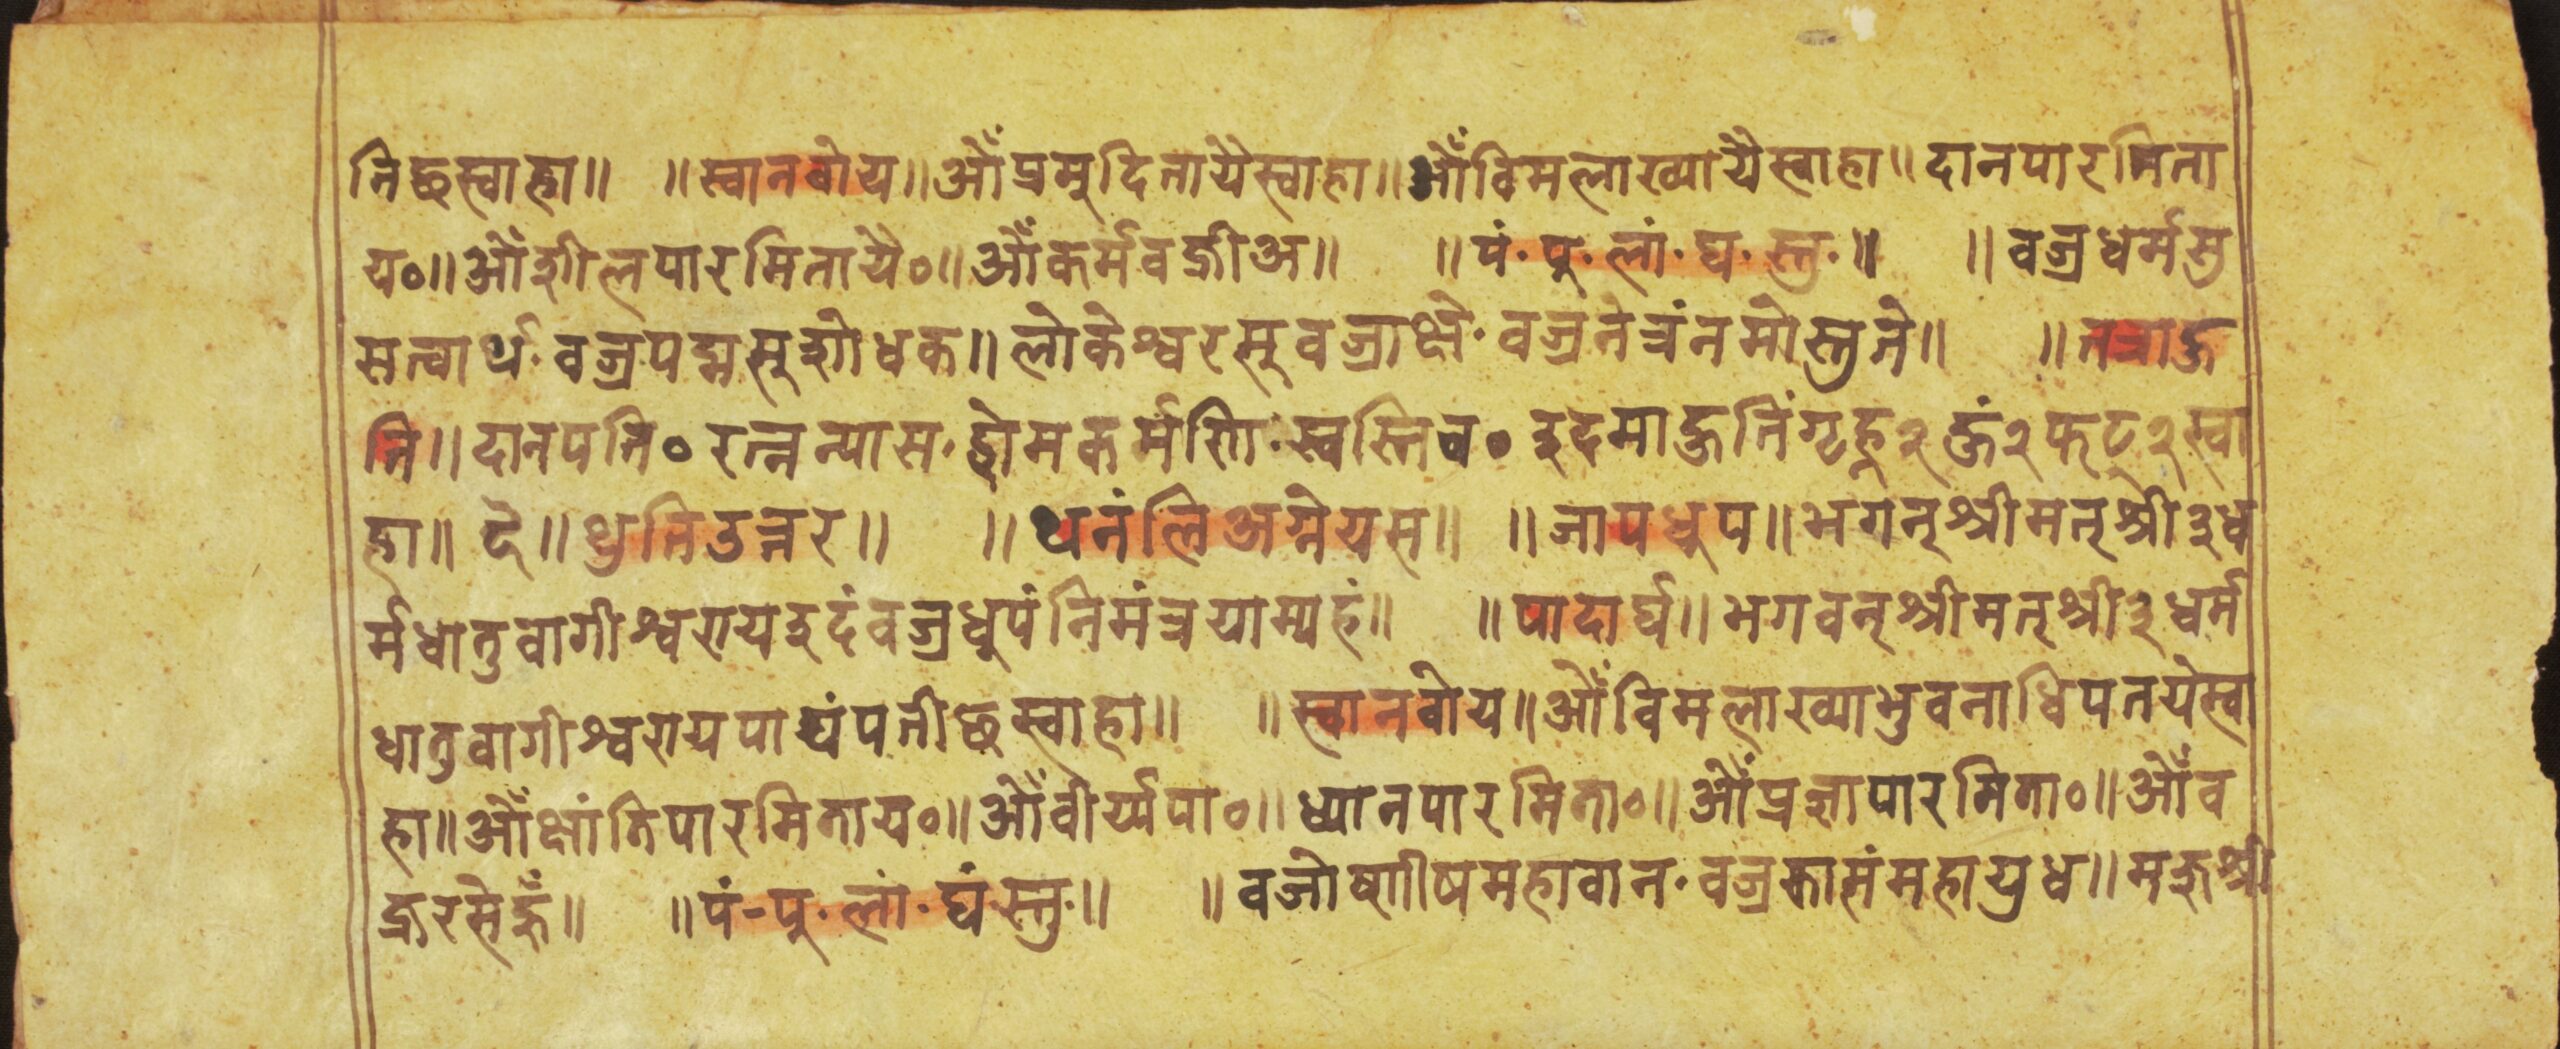 तिच्छस्वाहा॥ ॥स्वानबोय॥ओँप्रमुदितायैस्वाहा॥ओँविमलाख्यायैस्वाहा॥दानपारमिता
य०॥ओँशीलपारमितायै०॥ओँकर्मवज्रीअ॥ ॥पं·पु·लां·घ·स्तु·॥ ॥वज्रधर्मसु
सत्वार्थ·वज्रपद्मसूशोधक॥लोकेश्वरसूवज्राक्षे·वज्रनेत्रंनमोस्तुते॥ ॥तत्राहु
ति॥दानपति०रत्नन्यास·होमकर्मणि·स्वस्तिव०इदमाहुतिंगृह्ण२हूं२फट्२स्वा
हा॥ दै॥थुतिउत्तर॥ ॥थनंलिअग्नेयस॥ ॥जापधुप॥भगन्श्रीमत्श्री३ध
र्मधातुवागीश्वरायइदंवज्रधुपंनिमंत्रयाम्यहं॥ ॥पादार्घ॥भगवन्श्रीमत्श्री३धर्म
धातुवागीश्वरायपाद्यंपतीच्छस्वाहा॥ ॥स्वानबोय॥ओँविमलाख्याभुवनाधिपतयेस्वा
हा॥ओँक्षांतिपारमिताय०॥ओँवीर्य्यपा०॥ध्यानपारमिता०॥ओँप्रज्ञापारमिता०॥ओँव
ज्ररसेहूँ॥ ॥पं-पु·लां·घं·स्तु·॥ ॥वज्रोष्णीषमहावान·वज्रकामंमहायुध॥मञ्जुश्री